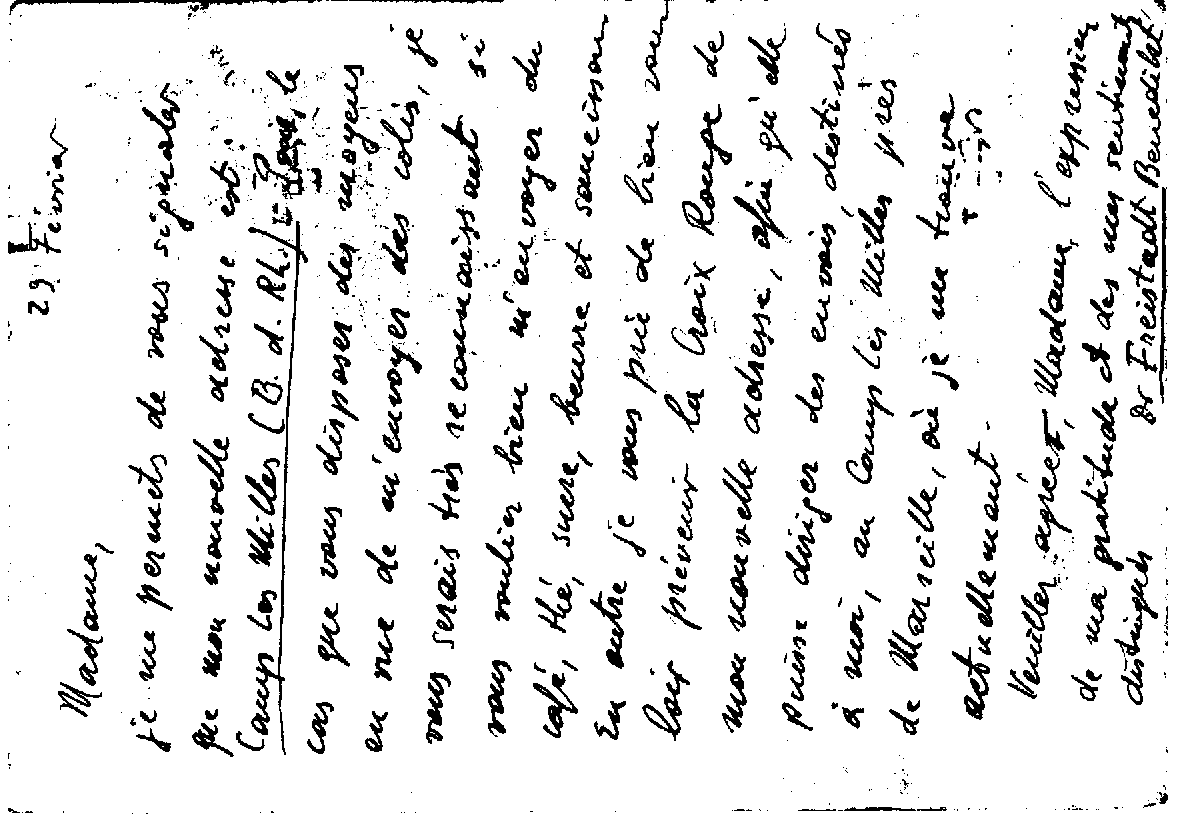 29 Février
Madame,
je me permets de vous signaler
que mon nouvelle adresse est:
Camp Les Milles (B. d. Rh.) le
cas que vous disposer des moyens
en vue de m'envoyer des colis, je
vous serais très reconnaissant si
vous voulier bien m'envoyer du
café, thé, sucre, beurre et saucisson
En outre je vous prie de bien vou
loir prévenir la Croix Rouge de
mon nouvelle adresse, afin qu'elle
puisse diriger des envois destinés
à moi, au Camp les Milles près
de Marseille, où je me trouve
actuellement.
Veuiller agréer, Madame, l'expression
de ma gratitude et des mes sentiments
distingués
Dr Freistadt Benedikt